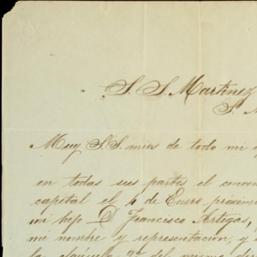 S. S. Martinez
S.
Muy S.S. mios de todo mi
en todas sus partes el
capital el 4 de Enero
mi hijo D Francisco Artigas,
mi nombre y representacion, y
la clausula 2ª del mismo